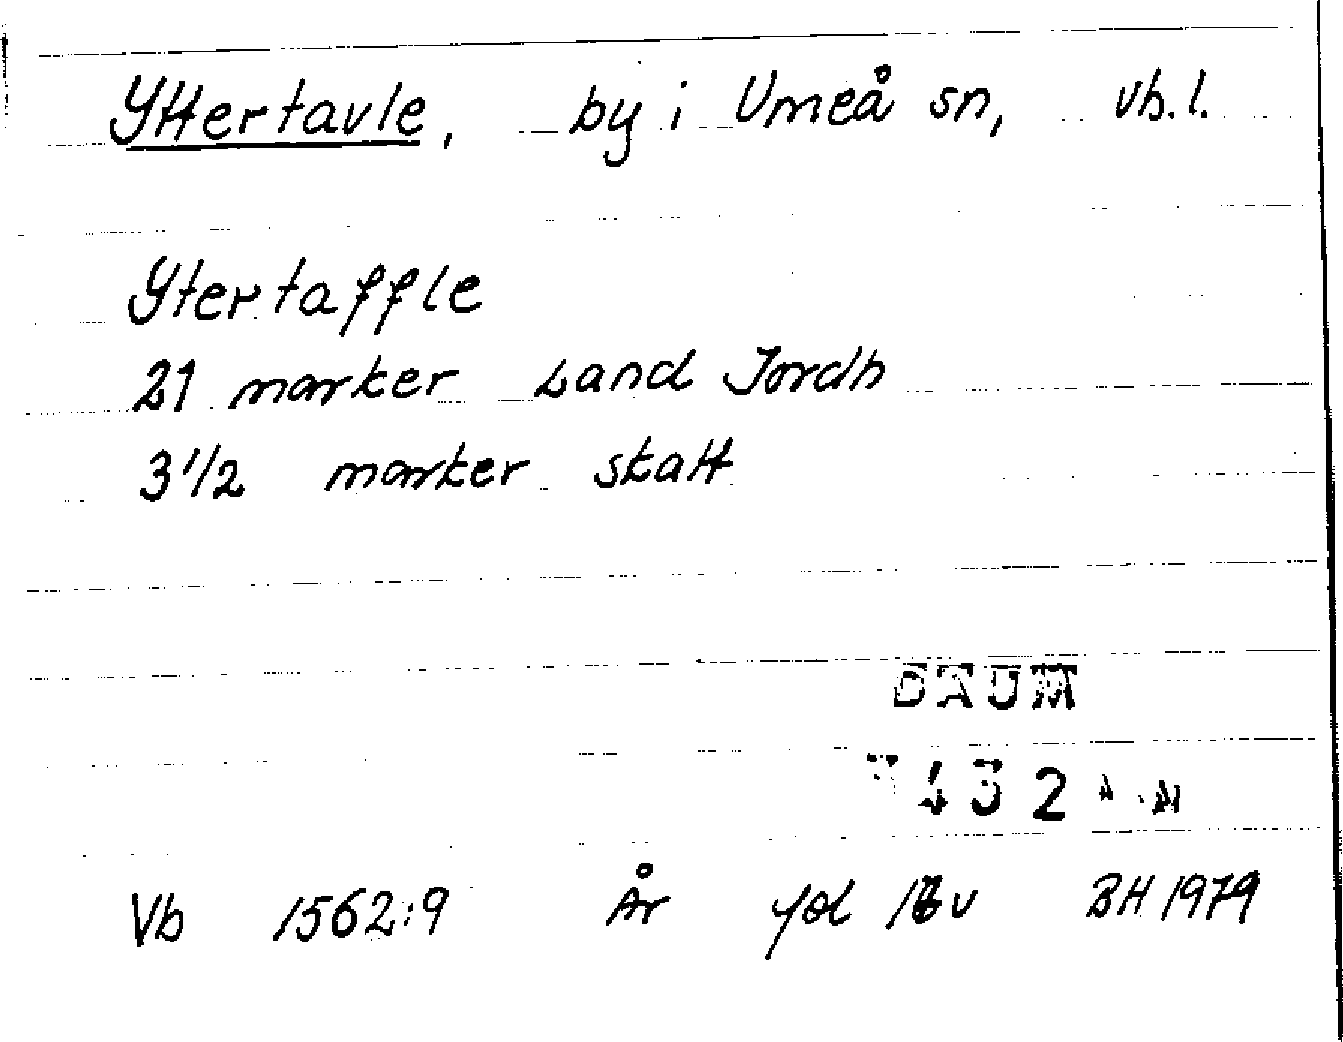 Yttertavle, by i Umeå sn, vb.l.
Ytertaffle
21 marker Land Jordh
3 1/2 marker skatt
DAUM
432
Vb 1562:9 År fol 18v BH 1979